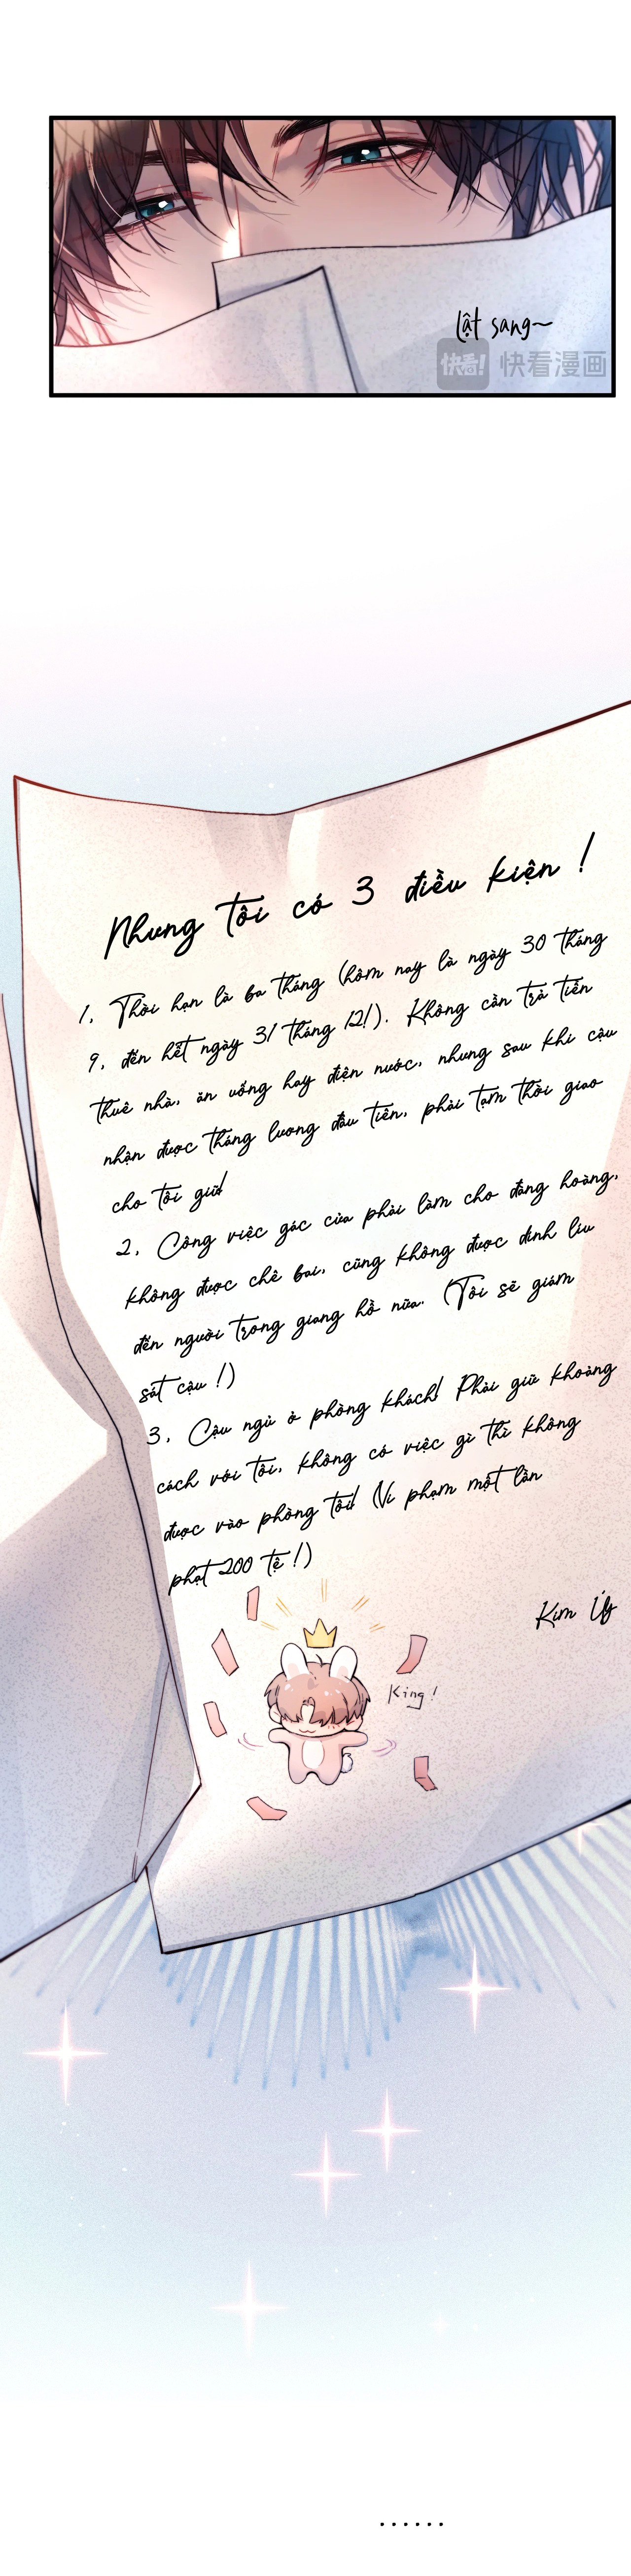 lật sang~
快看! 快看漫画
Nhưng tôi có 3 điều kiện !
1. Thời hạn là ba tháng (hôm nay là ngày 30 tháng
9, đến hết ngày 31 tháng 12!). Không cần trả tiền
thuê nhà, ăn uống hay điện nước, nhưng sau khi cậu
nhận được tháng lương đầu tiên, phải tạm thời giao
cho tôi giữ!
2. Công việc gác cửa phải làm cho đàng hoàng,
không được chê bai, cũng không được dính líu
đến người trong giang hồ nữa. (Tôi sẽ giám
sát cậu !)
3. Cậu ngủ ở phòng khách! Phải giữ khoảng
cách với tôi, không có việc gì thì không
được vào phòng tôi! (Vi phạm một lần
phạt 200 tệ !)
Kim Úy
King!
......